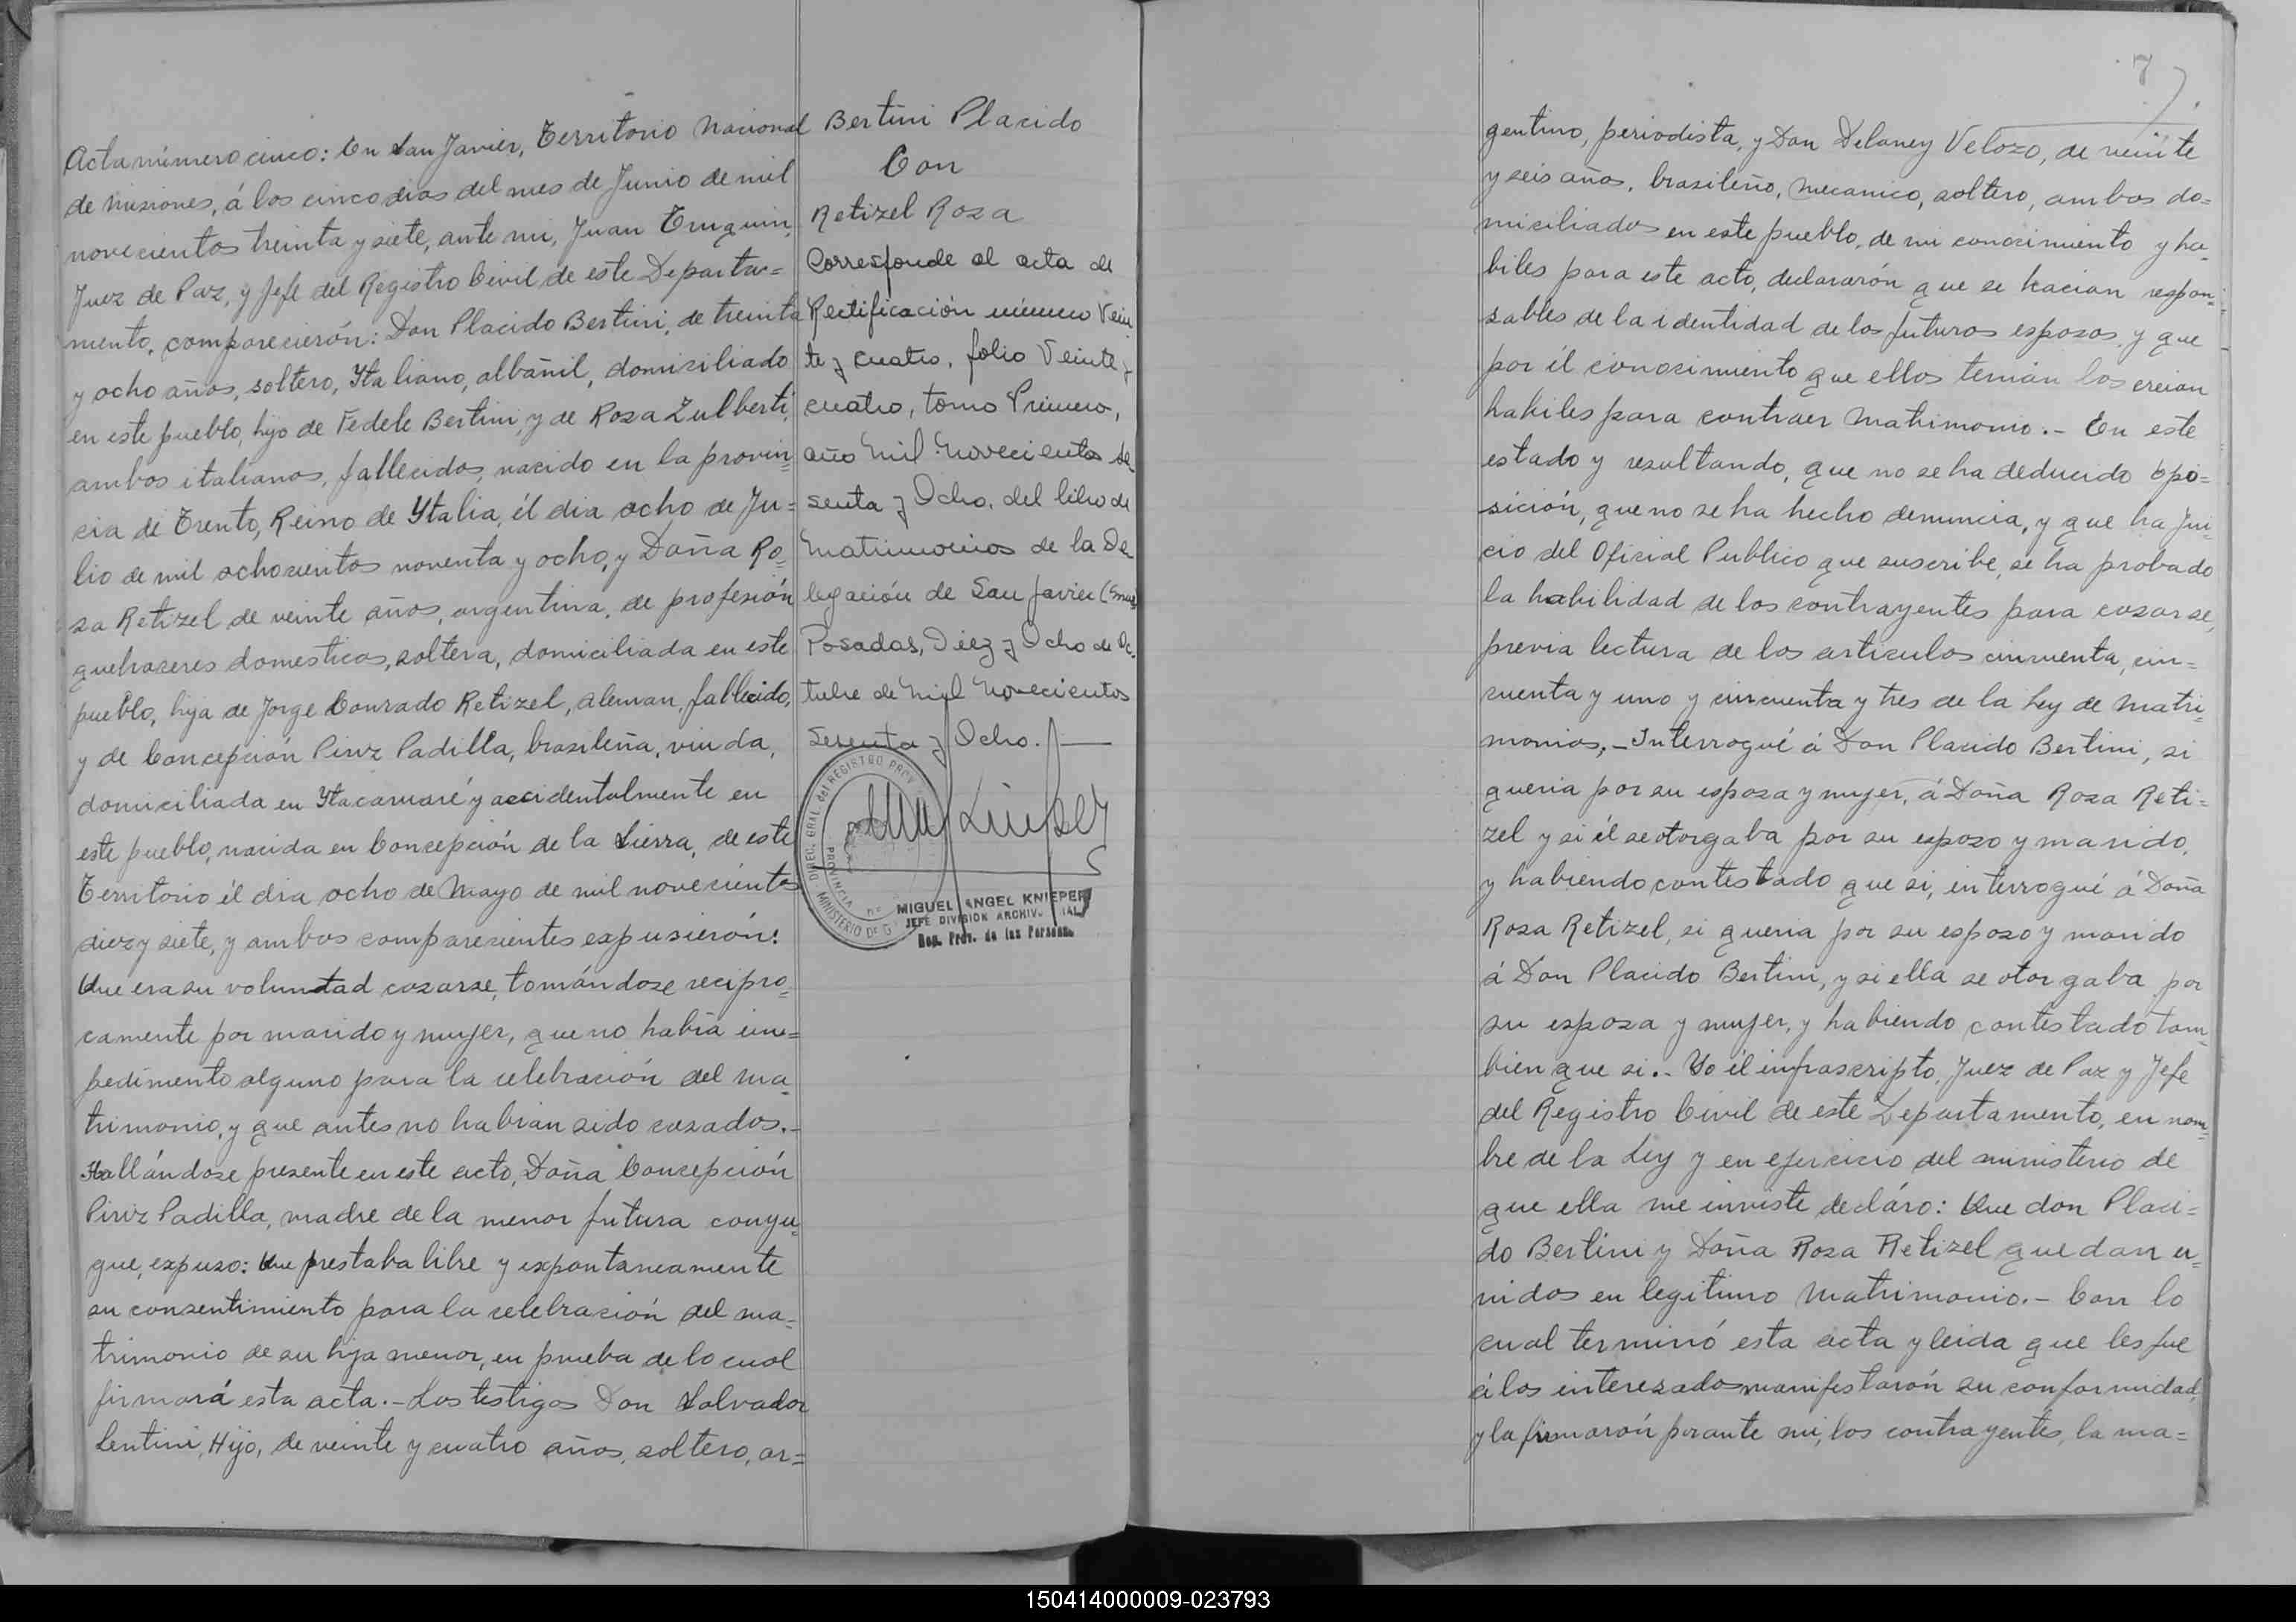 Acta número cinco: En San Javier, Territorio Nacional
de Misiones, á los cinco dias del mes de Junio de mil
novecientos treinta y siete, ante mi, Juan
Juez de Paz, y Jefe del Registro Civil de este Departa=
mento, comparecierón: Don Placido Bertini, de treinta
y ocho años, soltero, Ytaliano, albañil, domiciliado
en este pueblo, hijo de Fedele Bertini, y de Rosa Zulberti,
ambos italianos, fallecidos, nacido en la provin=
cia de Trento, Reino de Ytalia, él dia ocho de Ju=
lio de mil ochocientos noventa y ocho, y Doña Ro=
sa Retizel de veinte años, argentina, de profesión
quehaseres domesticos, soltera, domiciliada en este
pueblo, hija de Jorge Conrado Retizel, aleman, fallecido,
y de Concepción Piriz Padilla, brasileña, viuda,
domiciliada en Ytacaruaré y accidentalmente en
este pueblo, nacida en Concepción de la Sierra, de este
Territorio él dia ocho de Mayo de mil novecientos
diez y siete, y ambos comparecientes expusierón:
Que era su voluntad casarse, tomándose recipro=
camente por marido y mujer, que no había im=
pedimento alguno para la celebración del ma=
trimonio, y que antes no habian sido casados.-
Hallándose presente en este acto, Doña Concepción
Piriz Padilla, madre de la menor futura conyu=
gue, expuso: Que prestaba libre y expontaneamente
su consentimiento para la celebración del ma=
trimonio de su hija menor, en prueba de lo cual
firmará esta acta.- Los testigos Don Salvador
Lentini, Hijo, de veinte y cuatro años, soltero, ar=
Bertini Placido
Con
Retizel Rosa
Corresponde al acta de
Rectificación número Vein
te y cuatro, folio Veinte y
cuatro, tomo Primero,
año Mil Novecientos se
senta y Ocho, del libro de
Matrimonios de la De
legación de San Javier (Mnes)
Posadas, Diez y Ocho de Oc.
tubre de Mil Novecientos
Sesenta y Ocho.
DIREC. GRAL. del REGISTRO PROV.
PROVINCIA
MINISTERIO DE G
MIGUEL ANGEL KNIEPER
JEFE DIVISION ARCHIVO
Reg. Prov. de las Personas
7
gentino, periodista, y Don Delaney Velozo, de veinte
y seis años, brasileño, mecanico, soltero, ambos do=
miciliados en este pueblo, de mi conocimiento y ha=
biles para este acto, declararón que se hacian respon=
sables de la identidad de los futuros esposos, y que
por él conocimiento que ellos tenian los creian
habiles para contraer Matrimonio.- En este
estado y resultando, que no se ha deducido opo=
sición, que no se ha hecho denuncia, y que ha jui=
cio del Oficial Publico que suscribe, se ha probado
la habilidad de los contrayentes para casarse,
previa lectura de los articulos cincuenta, cin=
cuenta y uno y cincuenta y tres de la Ley de Matri=
monios,- Interrogué á Don Placido Bertini, si
queria por su esposa y mujer, á Doña Rosa Reti=
zel y si él se otorgaba por su esposo y marido,
y habiendo contestado que si, interrogué á Doña
Rosa Retizel, si queria por su esposo y marido
á Don Placido Bertini, y si ella se otorgaba por
su esposa y mujer, y habiendo contestado tam=
bien que si.- Yo él infrascripto, Juez de Paz y Jefe
del Registro Civil de este Departamento, en nom=
bre de la Ley y en ejercicio del ministerio de
que ella me inviste decláro: Que don Placi=
do Bertini y Doña Rosa Retizel quedan u=
nidos en legitimo Matrimonio.- Con lo
cual terminó esta acta y leida que les fue
á los interesados manifestarón su conformidad,
y la firmarón por ante mi, los contrayentes, la ma=
150414000009-023793